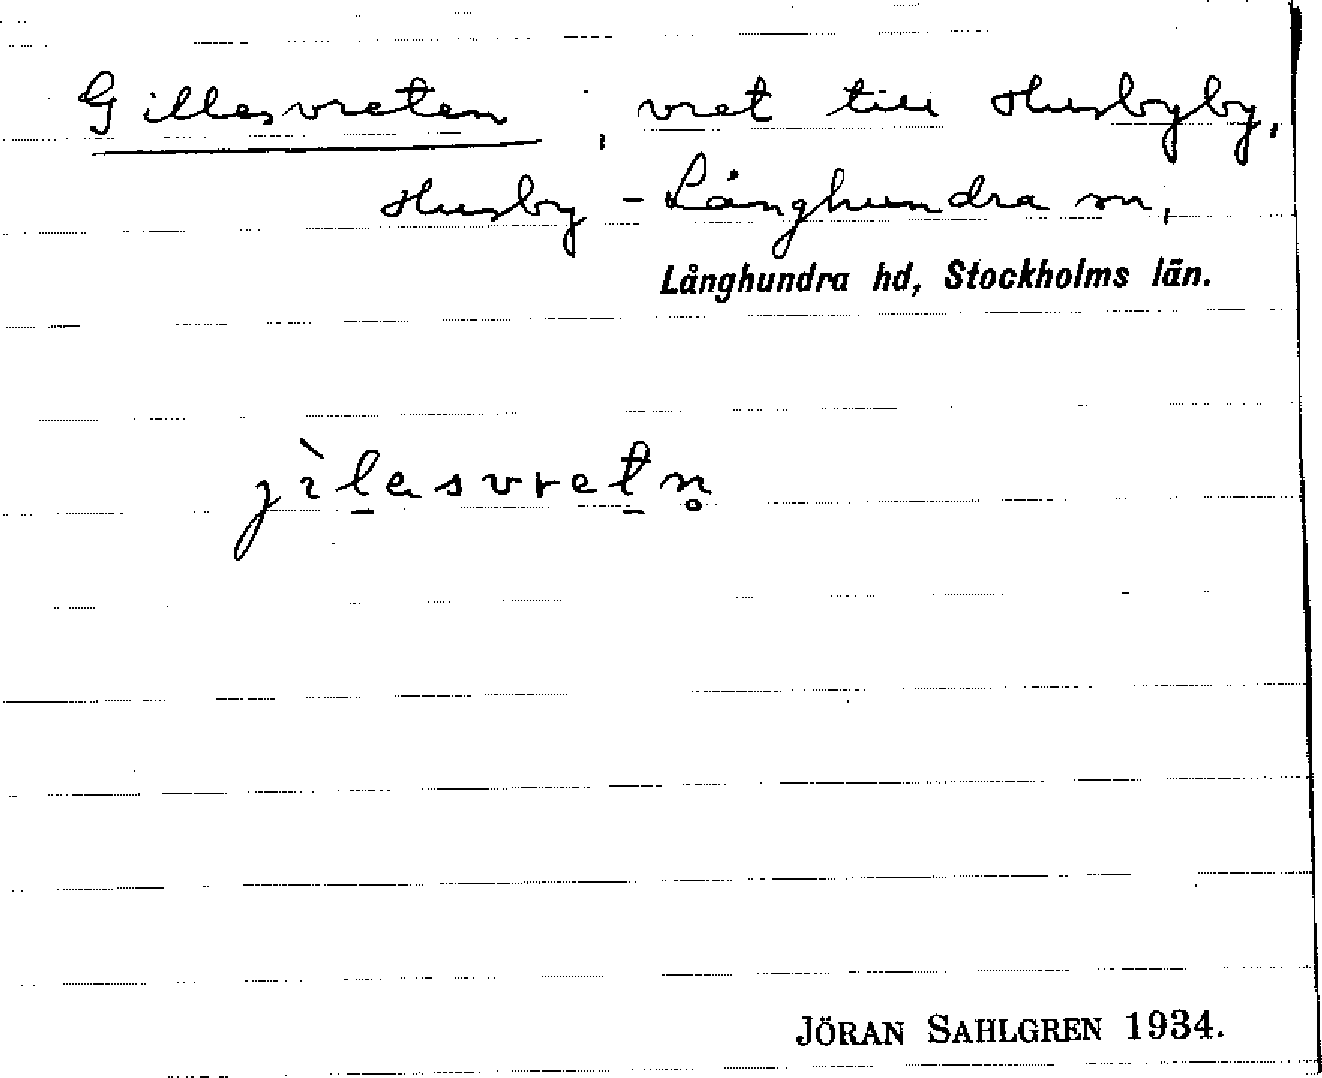 Gillesvreten, vret till Husbyby,
Husby-Långhundra sn,
Långhundra hd, Stockholms län.
jìl̠esvret̠n̥
JÖRAN SAHLGREN 1934.